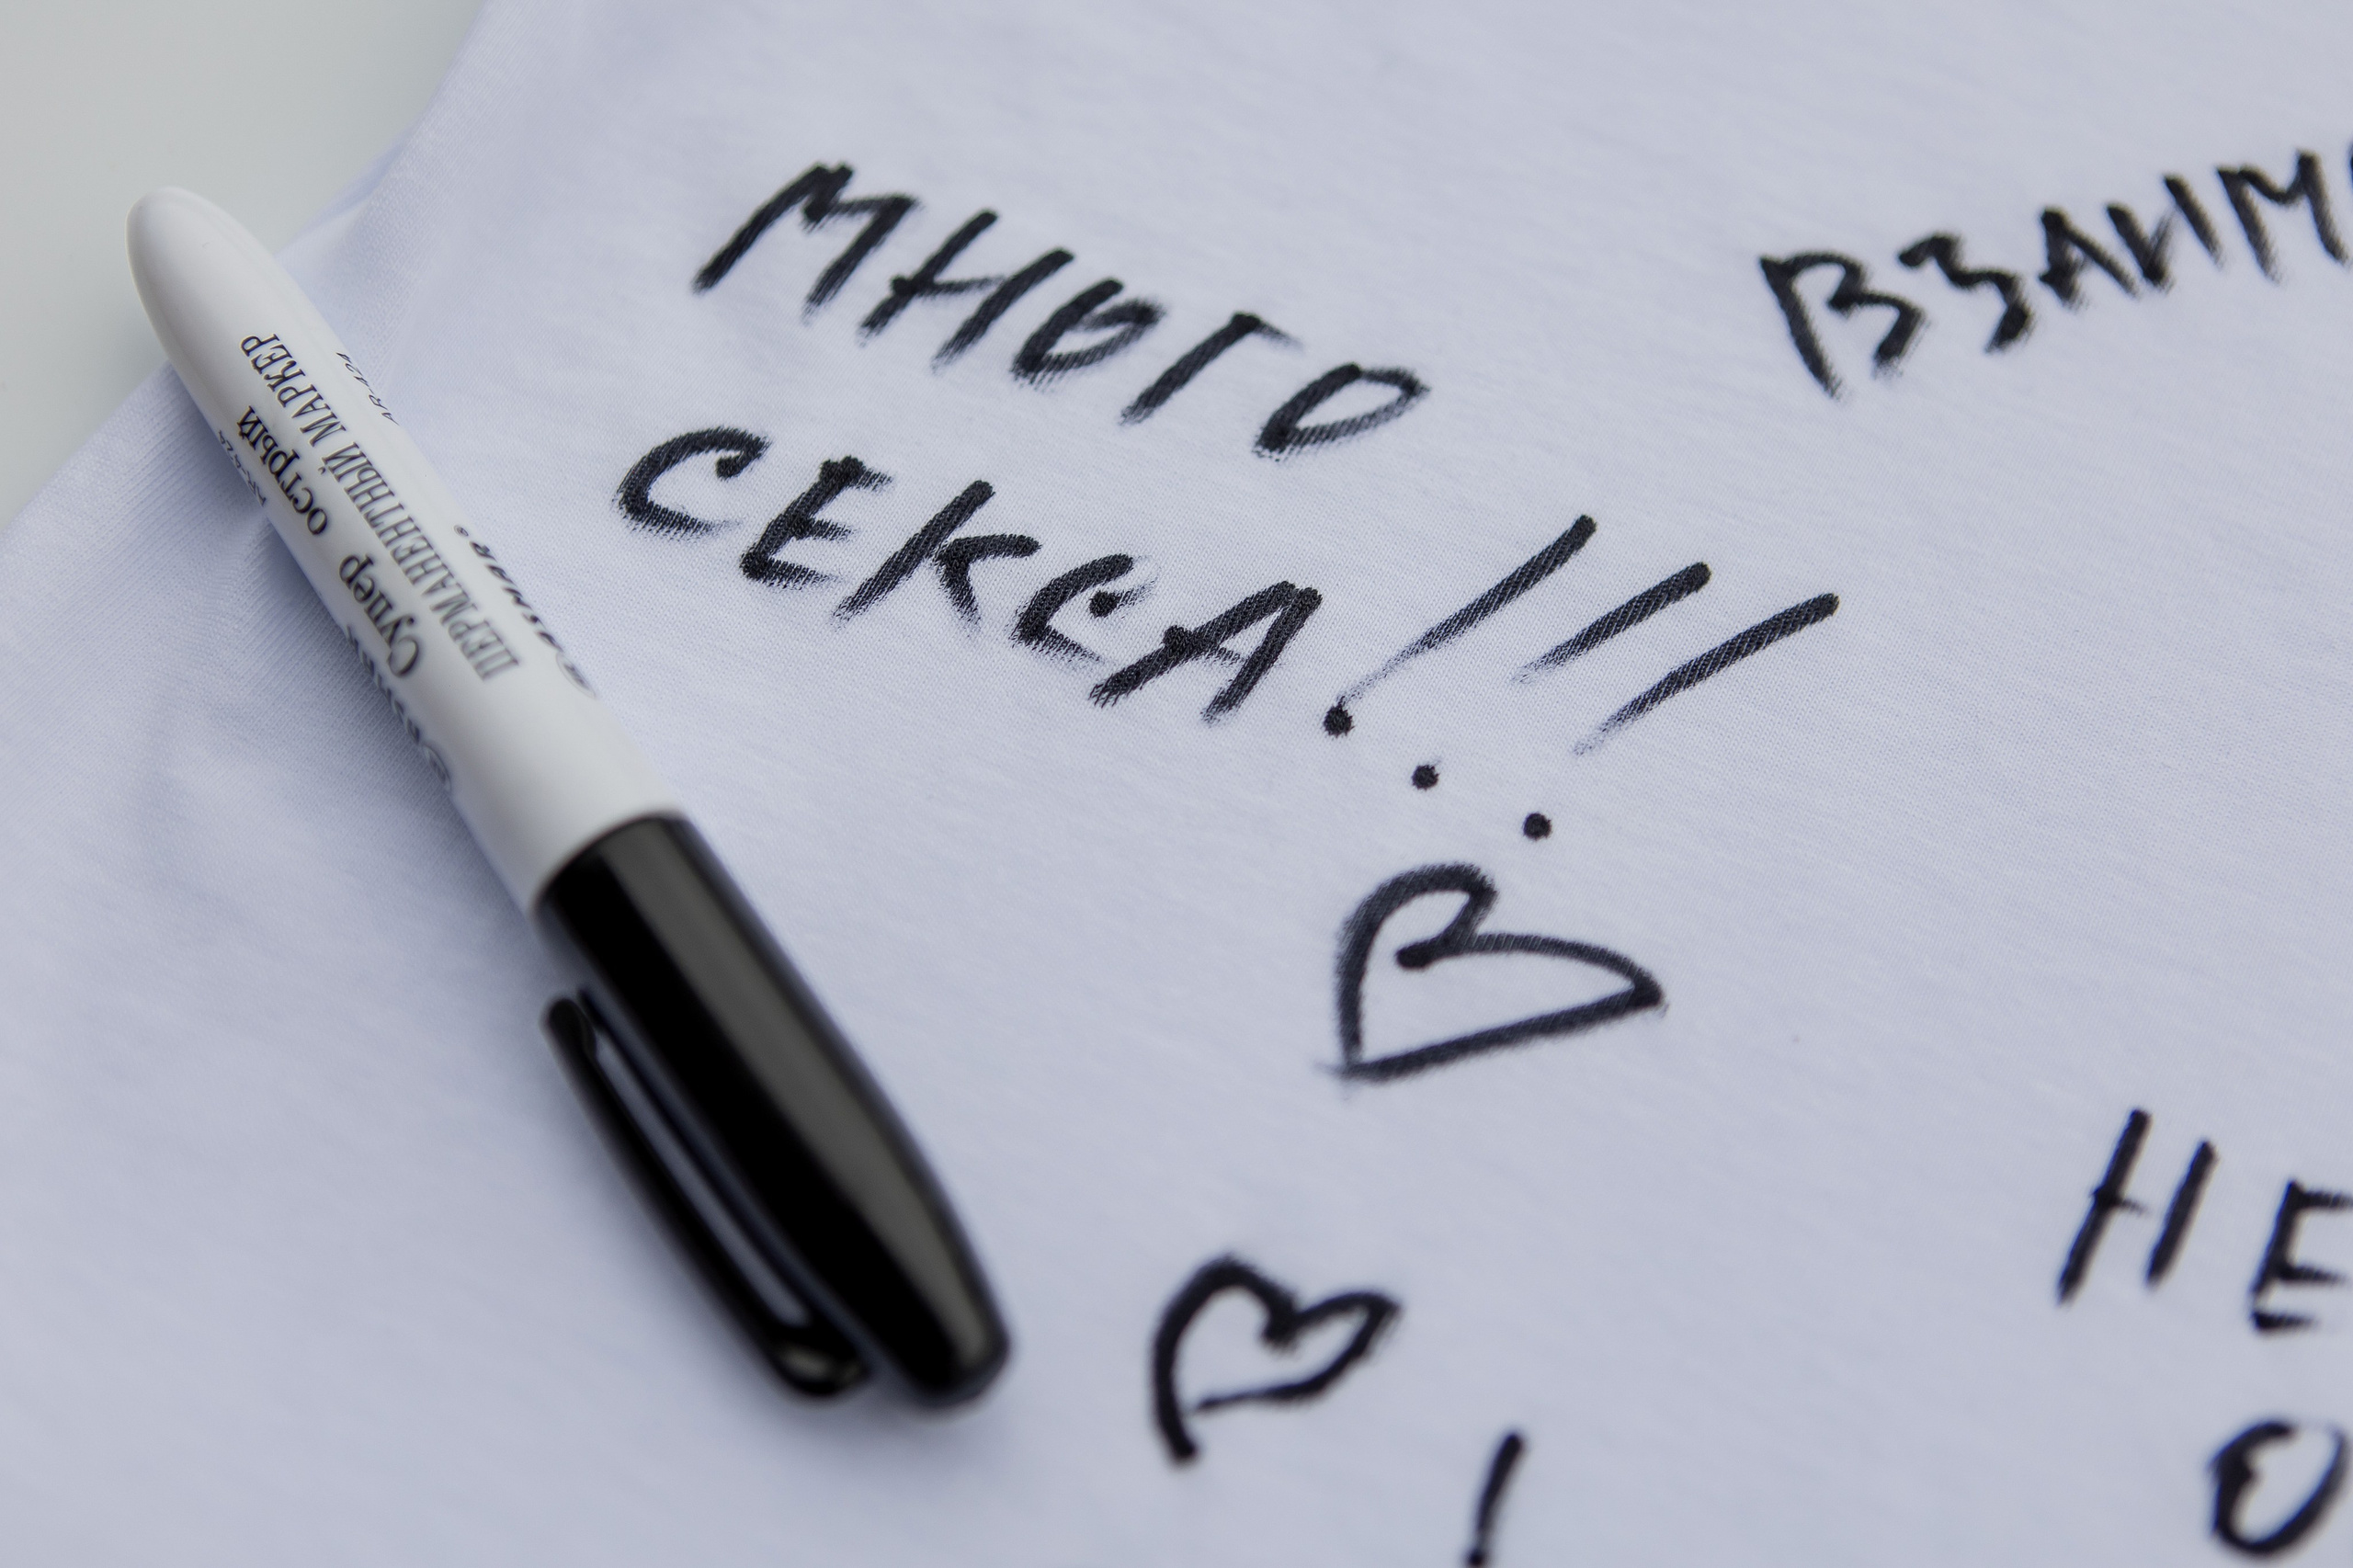 МНОГО
СЕКСА!!!
ВЗАИМ
НЕ
О
!
Супер острый
ПЕРМАНЕНТНЫЙ МАРКЕР